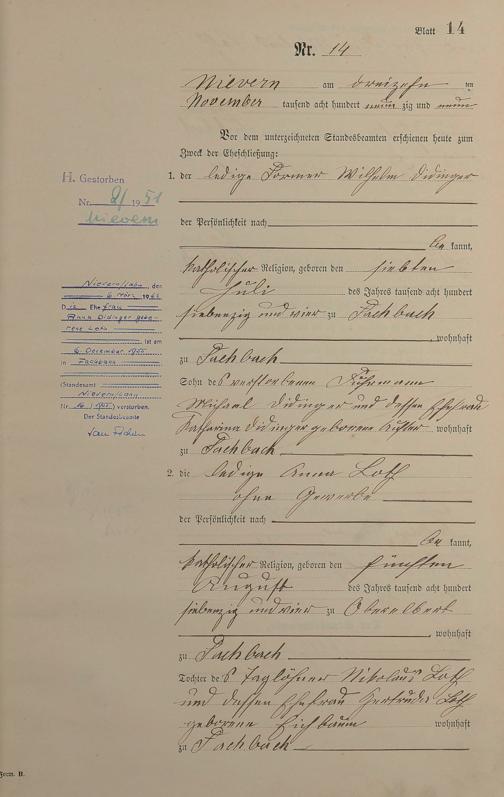 Blatt 14
Nr. 14
Nievern am dreizehnten
November tausend acht hundert neun zig und neun
Vor dem unterzeichneten Standesbeamten erschienen heute zum
Zweck der Eheschließung:
1. der ledige Former Wilhelm Didinger
der Persönlichkeit nach
be kannt,
katholischer Religion, geboren den siebten
Juli des Jahres tausend acht hundert
siebenzig und vier zu Fachbach
, wohnhaft
zu Fachbach
Sohn des verstorbenen Fuhrmann
Michael Didinger und dessen Ehefrau
Katharina Didinger geborene wohnhaft
zu Fachbach
2. die ledige Anna Loth
ohne Gewerbe
der Persönlichkeit nach
be kannt,
katholischer Religion, geboren den fünften
August des Jahres tausend acht hundert
siebenzig und vier zu Oberelbert
, wohnhaft
zu Fachbach
Tochter des Taglöhner Nikolaus Loth
und dessen Ehefrau Gertrude Loth
geborene Eichbaum wohnhaft
zu Fachbach
Form. B.
H. Gestorben
Nr. 2/1951
Nievern
Nievern/Lahn, den
6. März 19
Die Ehefrau
Anna Didinger gebo-
rene Loth
ist am
6. Dezember 1955
in Fachbach
(Standesamt
Nievern/Lahn
Nr. / 1955) verstorben.
Der Standesbeamte